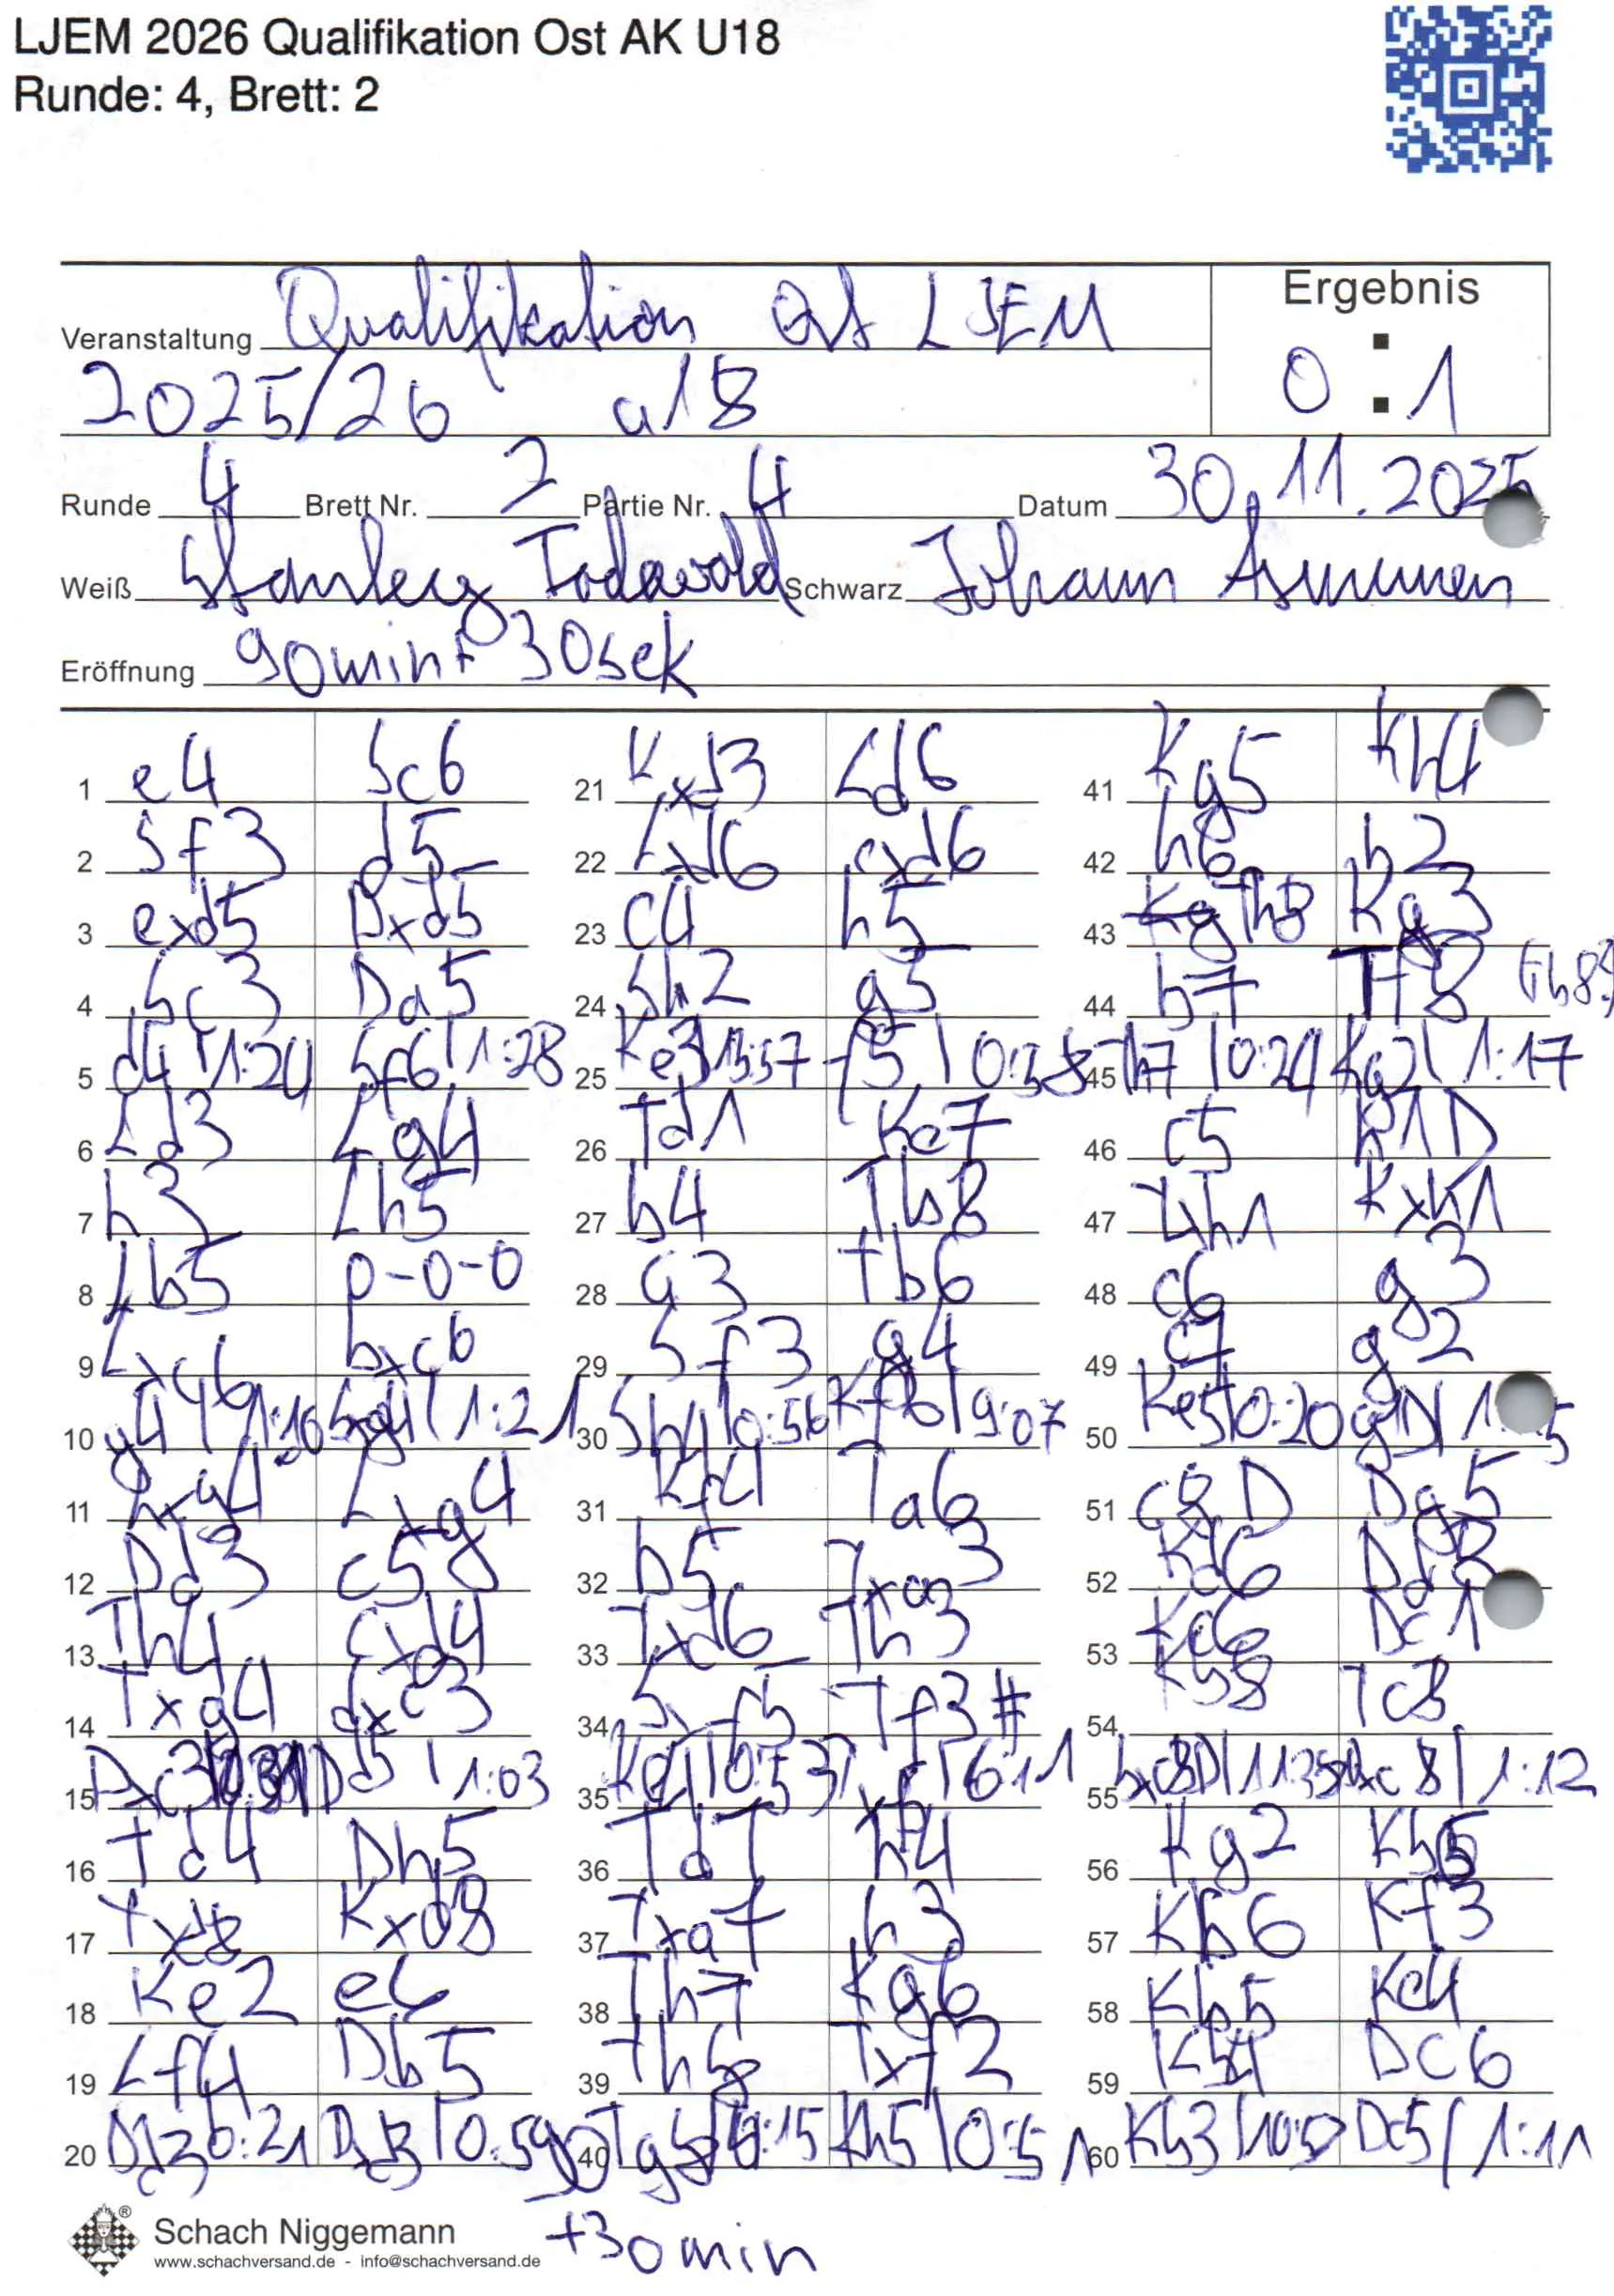 LJEM 2026 Qualifikation Ost AK U18
Runde: 4, Brett: 2
Ergebnis
Veranstaltung Qualifikation Ost LJEM
2025/26 u18
0 : 1
Runde 4 Brett Nr. 2 Partie Nr. 4 Datum 30.11.2025
Weiß Stanley Todawold Schwarz Johann Asmussen
Eröffnung 90min+ 30sek
1 e4 Sc6 21 Kxd3 Ld6 41 Kg5 Kh4
2 Sf3 d5 22 Lxd6 cxd6 42 h6 h2
3 exd5 Dxd5 23 c4 h5 43 Th8 Kg3
4 Sc3 Da5 24 Sh2 g5 44 b7 Tf8
5 d4 | 1:24 Sf6 | 1:28 25 Ke3 f5 | 0:58 45 Th7 | 0:24 Kg2 | 1:17
6 Ld3 Lg4 26 Td1 Ke7 46 c5 h1D
7 h3 Lh5 27 b4 Tb8 47 Txh1 Kxh1
8 Lb5 0-0-0 28 a3 Tb6 48 c6 g3
9 Lxc6 bxc6 29 Sf3 g4 49 c7 g2
10 g4 Sxg4 | 1:21 30 Sh4 | 0:56 Kf6 | 9:07 50 Ke5 | 0:20 g1D
11 hxg4 Lxg4 31 Kf4 Ta6 51 c8D Dg5
12 Dd3 c5 32 b5 Txa3 52 Kd6 Dd8
13 Th4 cxd4 33 Txd6 Th3 53 Kc6 Dc1
14 Txg4 dxc3 34 Sxf5 Tf3# 54 Kb8 Tc8
15 Dxc3 Dd5 | 1:03 35 Ke4 | 0:53 55 bxc8D Dxc8 | 1:12
16 Td4 Dh5 36 Td7 h4 56 Kg2 Kh5
17 Txd8 Kxd8 37 Txa7 h3 57 Kb6 Kf3
18 Ke2 e6 38 Th7 Kg6 58 Kb5 Ke4
19 Lf4 Db5 39 Th8 Txf2 59 Kb4 Dc6
20 Dd3 0:21 Dxd3 | 0:59 40 Kh5 | 0:51 60 Kb3 Dc5 | 1:11
Schach Niggemann +30min
www.schachversand.de - info@schachversand.de